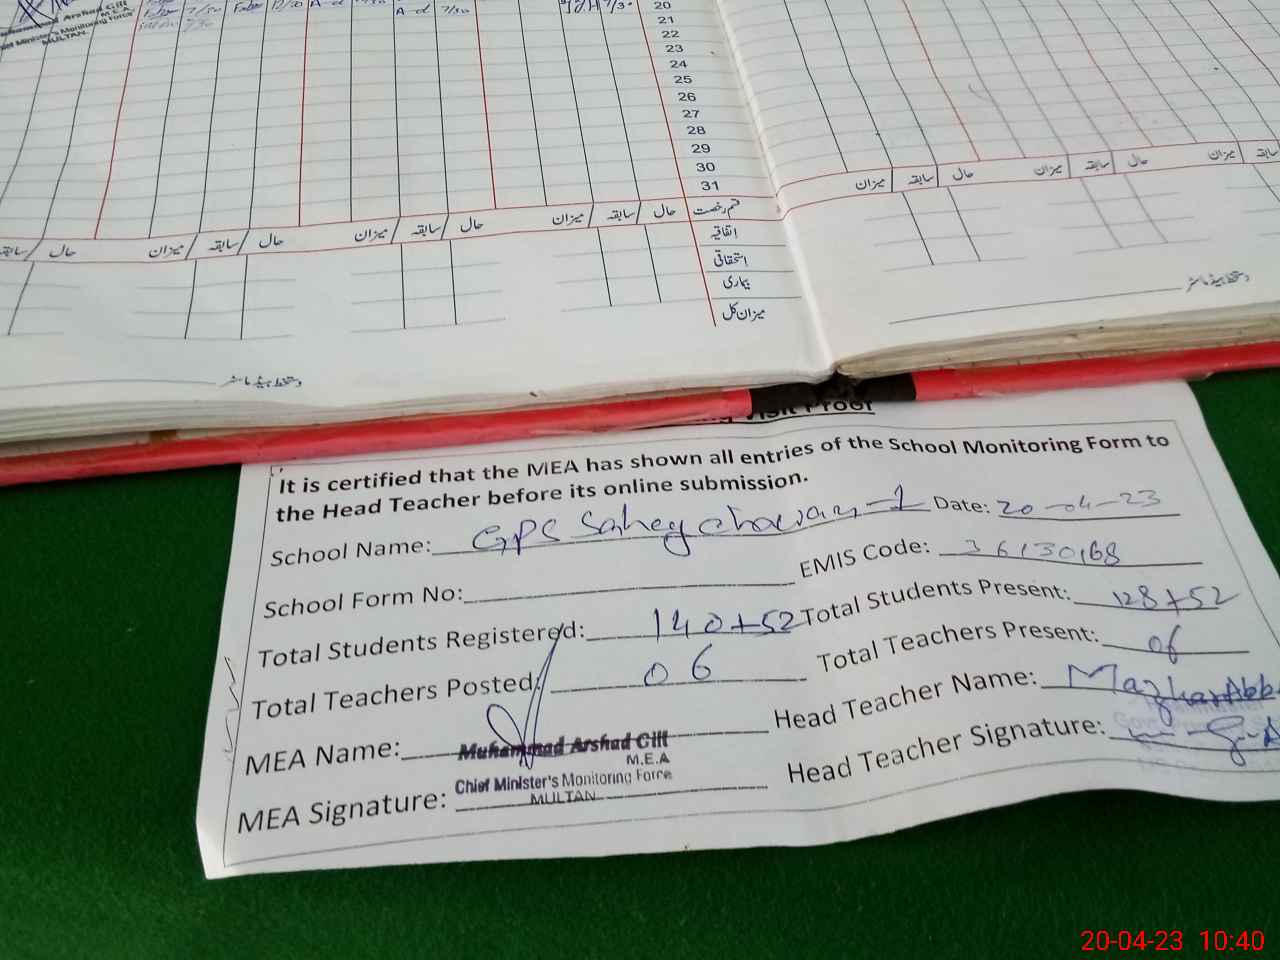 Arshad Gill
M.E.A.
Chief Minister's Monitoring Force
MULTAN.
7/30 12/30 7/30
A-d 7/30 7/30
20
21
22
23
24
25
26
27
28
29
30
31
قسم رخصت حال سابقہ میزان حال سابقہ میزان حال سابقہ
اتفاقیہ
استحقاقی
بیماری
میزان کل
دستخط ہیڈ ماسٹر
حال سابقہ میزان حال سابقہ میزان
دستخط ہیڈ ماسٹر
Visit Proof
It is certified that the MEA has shown all entries of the School Monitoring Form to
the Head Teacher before its online submission.
School Name: GPS Date: 20-04-23
School Form No: EMIS Code: 36130168
Total Students Registered: 140+52 Total Students Present: 128+52
Total Teachers Posted: 06 Total Teachers Present: 06
MEA Name: Muhammad Arshad Gill Head Teacher Name: Mazhar Abb
M.E.A
MEA Signature: Chief Minister's Monitoring Force Head Teacher Signature:
MULTAN
20-04-23 10:40